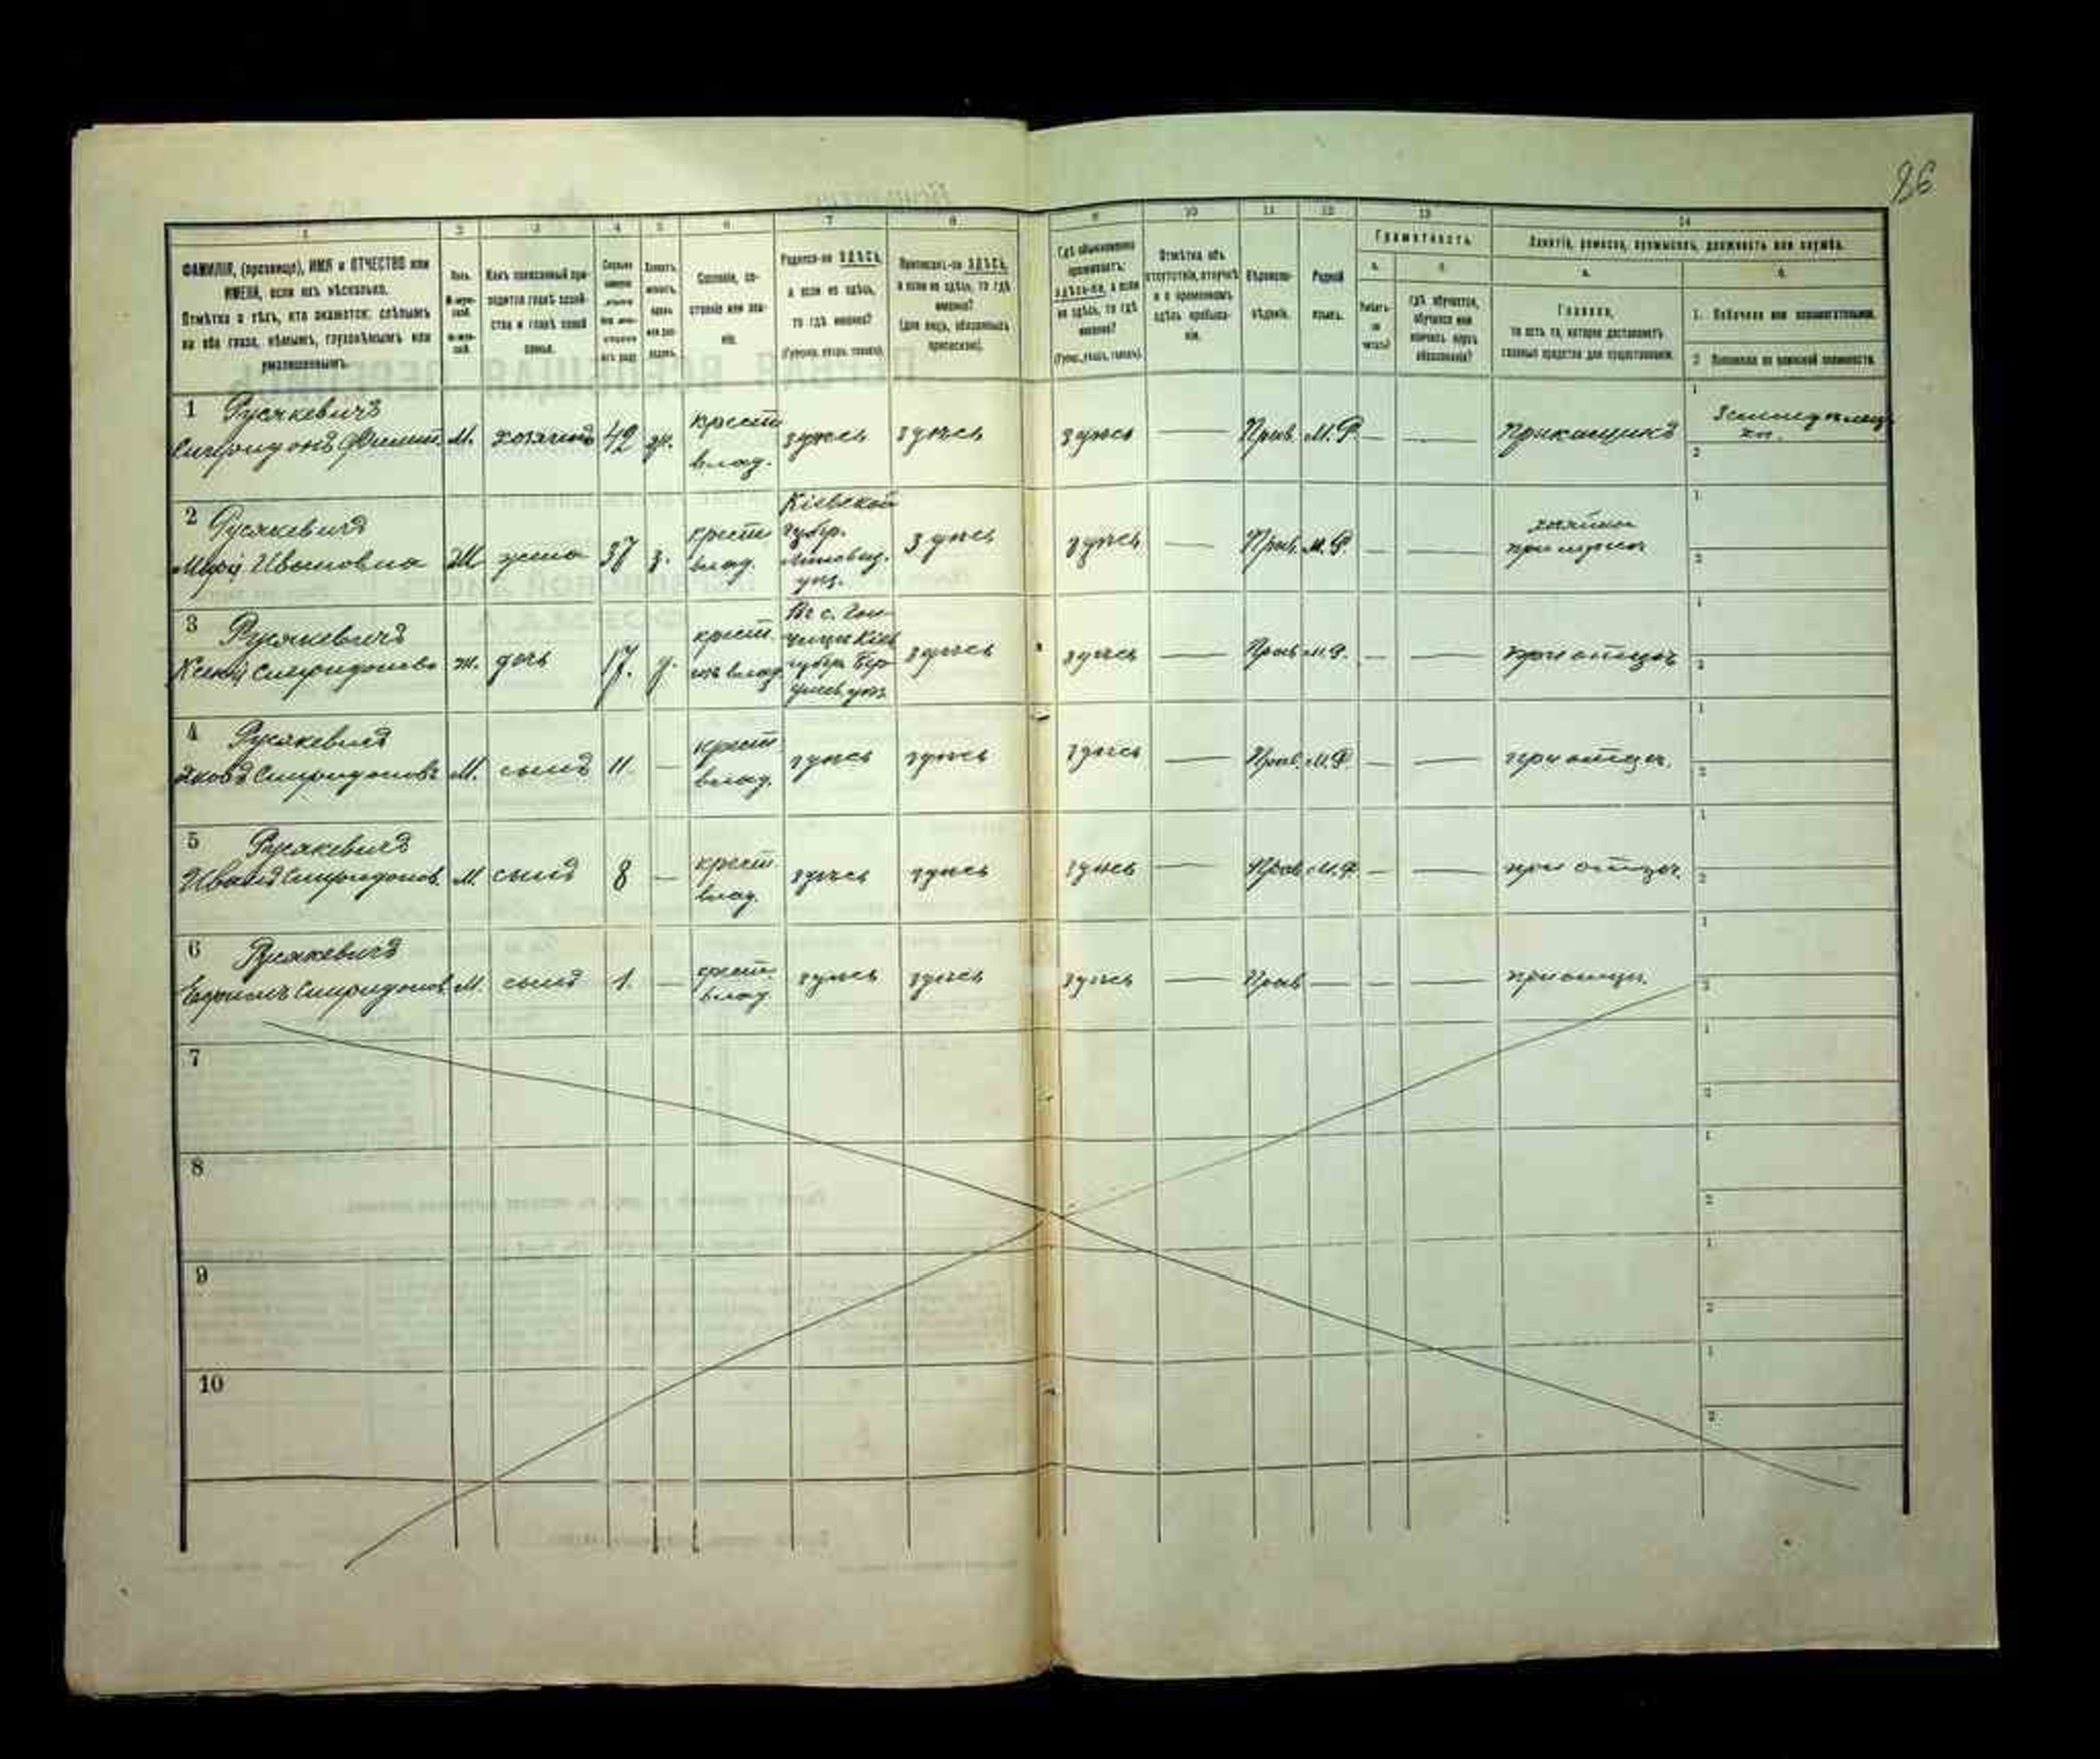 86
1 2 3 4 5 6 7 8 9 10 11 12 13 14
ФАМИЛІЯ, (прозвище), ИМЯ и ОТЧЕСТВО или
ИМЕНА, если ихъ нѣсколько.
Отмѣтка о тѣхъ, кто окажется: слѣпымъ
на оба глаза, нѣмымъ, глухонѣмымъ или
умалишеннымъ.
Полъ.
М-муж-
ской.
Ж-жен-
скій.
Какъ записанный при-
ходится главѣ хозяй-
ства и главѣ своей
семьи.
Сословіе, со-
стояніе или зва-
ніе.
Родился-ли ЗДѢСЬ,
а если не здѣсь,
то гдѣ именно?
(Губернія, уѣздъ, городъ).
Приписанъ-ли ЗДѢСЬ,
а если не здѣсь, то гдѣ
именно?
(для лицъ, обязанныхъ
припискою).
Гдѣ обыкновенно
проживаетъ:
здѣсь-ли, а если
не здѣсь, то гдѣ
именно?
(Губер., уѣздъ, городъ).
Отмѣтка объ
отсутствіи, отлучкѣ
и о временномъ
здѣсь пребыва-
ніи.
Вѣроиспо-
вѣданіе.
Родной
языкъ.
Грамотность
а. б.
Умѣетъ-
ли
читать?
гдѣ обучается,
обучался или
кончилъ курсъ
образованія?
Занятіе, ремесло, промыселъ, должность или служба.
а. б.
Главное,
то есть то, которое доставляетъ
главныя средства для существованія.
1. Побочное или вспомогательное.
2. Положеніе по воинской повинности.
1 Русякевичъ
Спиридонъ Филип. М. хозяинъ 42 ж. крест. влад. здѣсь здѣсь здѣсь — Прав. М.Р. — — Прикащикъ
2 Русякевичъ
Марія Ивановна Ж жена 37 з. крест. влад. Кіевской губер. уѣз. здѣсь здѣсь — Прав. М.Р. — — при мужѣ
3 Русякевичъ
Ксенія Спиридонова ж. дочь 17. д. крест. влад. здѣсь здѣсь — Прав. М.Р. — — при отцѣ
4 Русякевичъ
Яковъ Спиридоновъ М. сынъ 11. — крест. влад. здѣсь здѣсь здѣсь — Прав. М.Р. — — при отцѣ.
5 Русякевичъ
Иванъ Спиридонов. М. сынъ 8 — крест. влад. здѣсь здѣсь здѣсь — Прав. М.Р. — — при отцѣ.
6 Русякевичъ
Ефримъ Спиридонов. М. сынъ 1. — крест. влад. здѣсь здѣсь здѣсь — Прав. — — — при отцѣ.
7
8
9
10